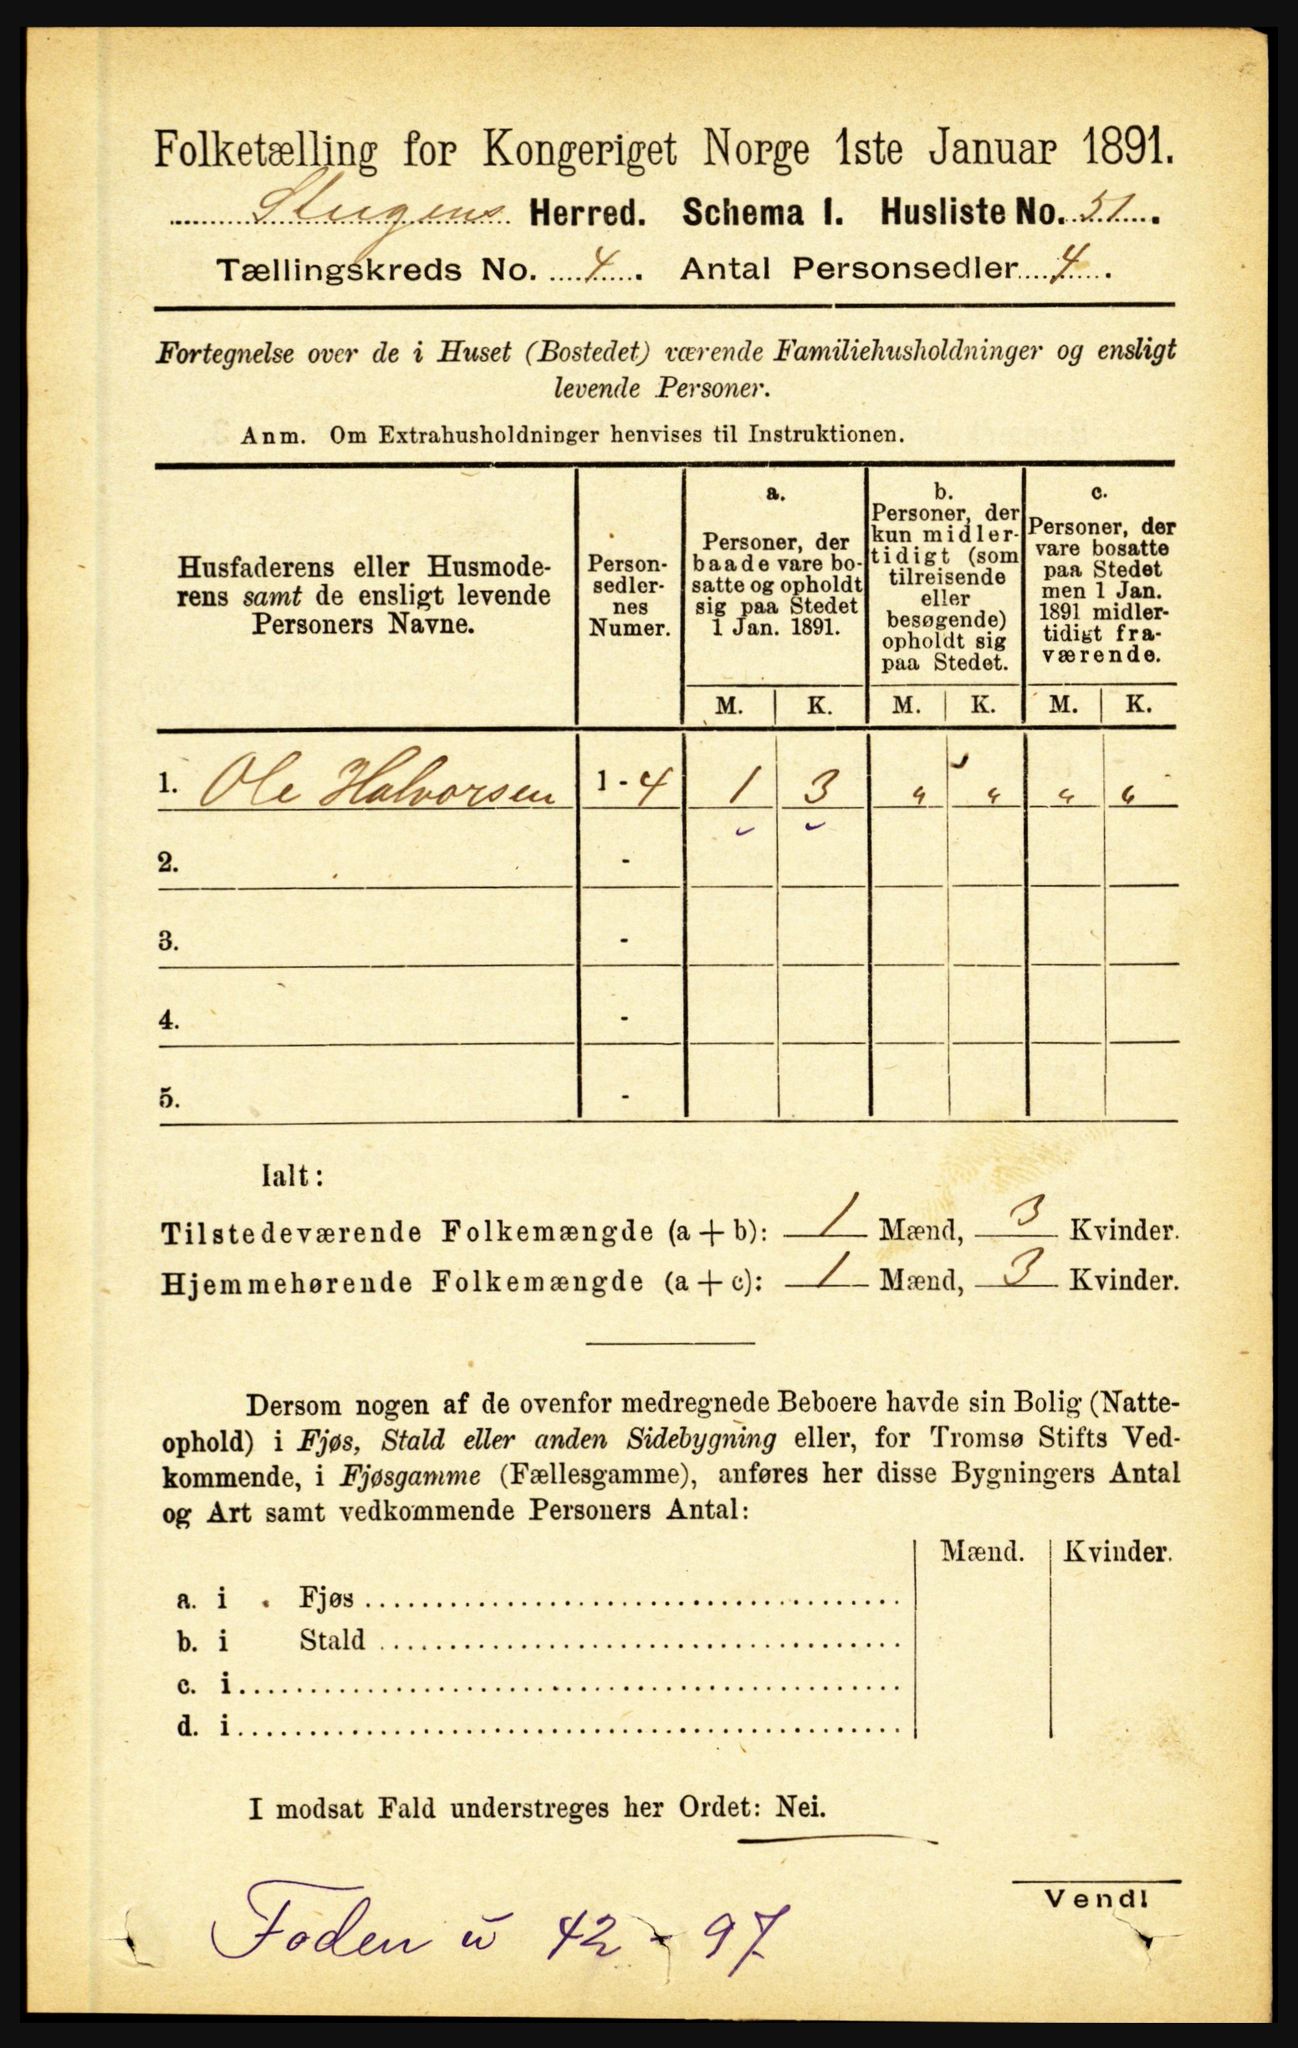 Folketælling for Kongeriget Norge 1ste Januar 1891.
Steigens Herred. Schema I. Husliste No. 51.
Tællingskreds No. 4. Antal Personsedler 4.
Fortegnelse over de i Huset (Bostedet) værende Familiehusholdninger og ensligt
levende Personer.
Anm. Om Extrahusholdninger henvises til Instruktionen.
Husfaderens eller Husmode-
rens samt de ensligt levende
Personers Navne.
Person-
sedler-
nes
Numer.
a.
Personer, der
baade vare bo-
satte og opholdt
sig paa Stedet
1 Jan. 1891.
b.
Personer, der
kun midler-
tidigt (som
tilreisende
eller
besøgende)
opholdt sig
paa Stedet.
c.
Personer, der
vare bosatte
paa Stedet
men 1 Jan.
1891 midler-
tidigt fra-
værende.
M. K. M. K. M. K.
1. Ole Halvorsen 1 - 4 1 3 " " " "
2. -
3. -
4. -
5. -
Ialt:
Tilstedeværende Folkemængde (a + b): 1 Mænd, 3 Kvinder.
Hjemmehørende Folkemængde (a + c): 1 Mænd, 3 Kvinder.
Dersom nogen af de ovenfor medregnede Beboere havde sin Bolig (Natte-
ophold) i Fjøs, Stald eller anden Sidebygning eller, for Tromsø Stifts Ved-
kommende, i Fjøsgamme (Fællesgamme), anføres her disse Bygningers Antal
og Art samt vedkommende Personers Antal:
Mænd. Kvinder.
a. i Fjøs
b. i Stald
c. i
d. i
I modsat Fald understreges her Ordet: Nei.
Vend!
42 - 97